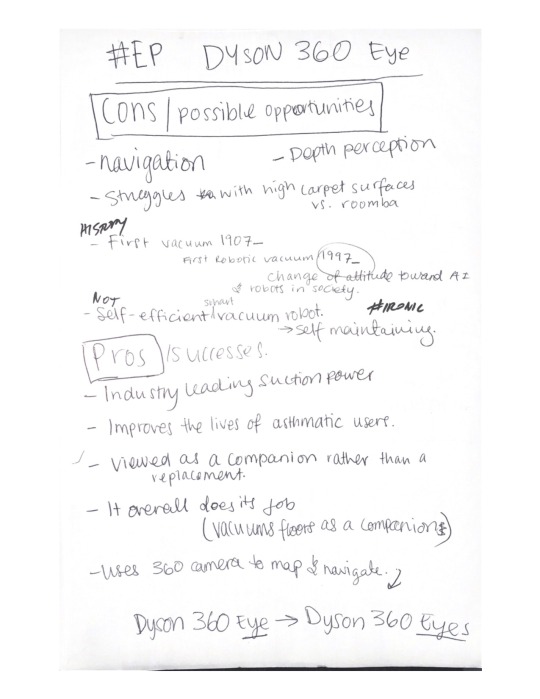 #EP DYSON 360 Eye
Cons / possible opportunities
- navigation - Depth perception
- Struggles with high carpet surfaces
vs. roomba
HISTORY
- First vacuum 1907_
First Robotic vacuum 1997_
change of attitude toward AI
& robots in society.
NOT smart #IRONIC
- Self-efficient vacuum robot.
→ self maintaining.
Pros /successes.
- Industry leading suction power
- Improves the lives of asthmatic users.
- Viewed as a companion rather than a
replacement.
- It overall does its job
(vacuums floors as a companions)
- Uses 360 camera to map & navigate.
Dyson 360 Eye → Dyson 360 Eyes